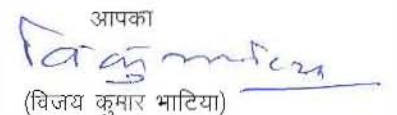 आपका
(विजय कुमार भाटिया)